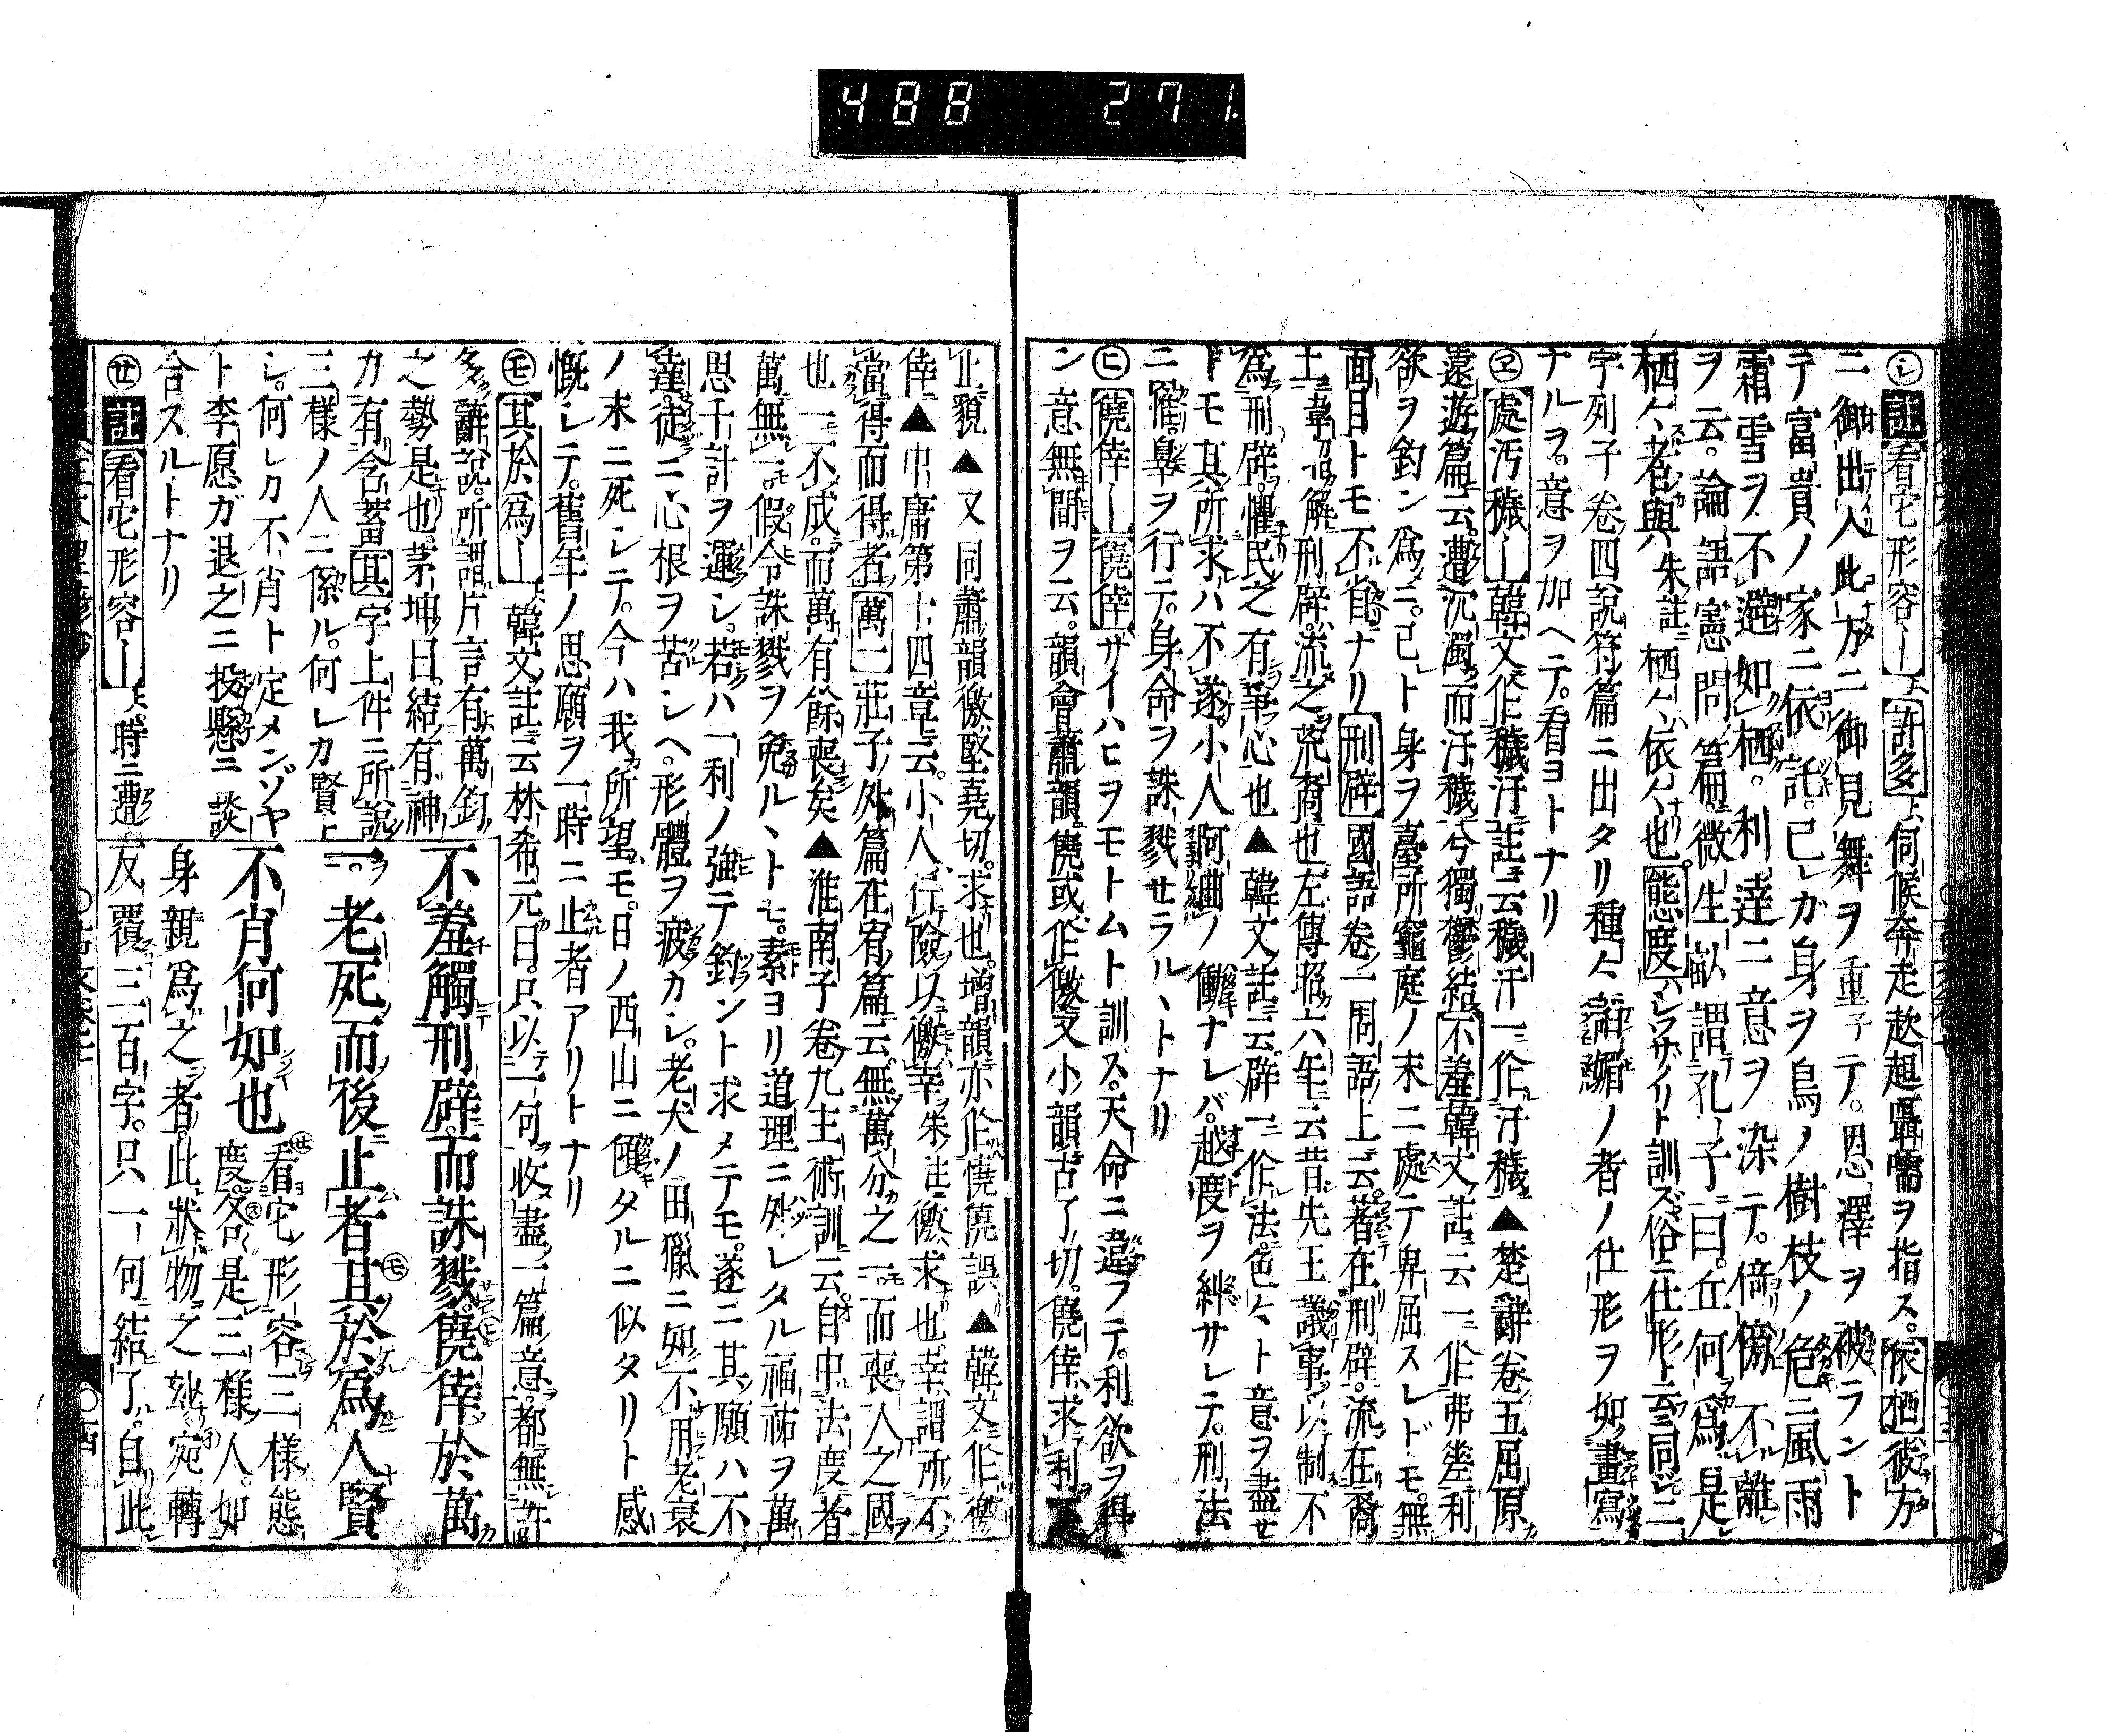 488 271
㋛註看它形容—許多伺候奔走趑趄囁嚅ヲ指ス。依栖彼方
ニ御出入此方ニ御見舞ヲ重子テ。恩澤ヲ被ラント
テ富貴ノ家ニ依託。己レガ身ヲ鳥ノ樹枝ノ危ニ風雨
霜雪ヲ不避如栖。利達ニ意ヲ染テ。倚傍不離
ヲ云。論語憲問篇微生畝謂孔子曰。丘何爲是
栖々者與朱註栖々依々也。態度ハレワザイト訓ズ。俗ニ仕形ト云ニ同ジ。二
字列子卷四説符篇ニ出タリ種々諂媚ノ者ノ仕形ヲ如畫寫
ナルヲ。意ヲ加ヘテ。看ヨトナリ
㋓處汚穢—韓文作穢汙註云穢汙一作汙穢▲楚辭卷五屈原
遠遊篇云。遭沉濁而汙穢兮獨鬱結不羞韓文註云一作弗羞利
欲ヲ釣ン爲ニ。己ト身ヲ臺所竈庭ノ末ニ處テ卑屈スレドモ。無
面目トモ不省ナリ刑辟國語卷一周語上云。著在刑辟。流在裔
土韋昭解刑辟流之荒裔也左傳昭六年云昔先王議事以制不
爲刑辟。懼民之有爭心也▲韓文註云。辟一作法。色々ト意ヲ盡セ
ドモ其所求ハ不遂。小人阿曲ノ働ナレバ。越度ヲ糾サレテ。刑法
ニ罹。辠ヲ行テ。身命ヲ誅戮セラルヽトナリ
㋪僥倖—僥倖サイハヒヲモトムト訓ス。天命ニ違フテ。利欲ヲ得
ン意無間ヲ云。韻會蕭韻僥或作徼又小韻吉了切。僥倖求利
止貌▲又同蕭韻徼堅堯切。求也。增韻亦作憿僥誤▲韓文作徼
倖▲中庸第十四章云。小人行險以徼幸朱注徼求也。幸謂所不
當得而得者萬一莊子外篇在宥篇云。無萬分之一。而喪人之國
也一不成。而萬有餘喪矣▲淮南子卷九主術訓云。自中法度者
萬無一。假令誅戮ヲ免ルヽトモ。素ヨリ道理ニ外レタル福祐ヲ萬
思千計ヲ運シ。若ハ一利ノ強テ釣ント求メテモ。遂ニ其願ハ不
達。徒ニ心根ヲ苦シヘ。形體ヲ疲カシ。老犬ノ田獵ニ如不用老衰
ノ末ニ死シテ。今ハ我所望モ。日ノ西山ニ傾タルニ似タリト感
慨シテ。舊年ノ思願ヲ一時ニ止者アリトナリ
㋲其於爲—韓文註云林希元曰。只以一句收盡一篇意都無許
多辭説。所謂片言有萬鈞
之勢是也。茅坤曰。結有神
力有含蓄其字上件ニ所説
三樣ノ人ニ係ル。何レカ賢ト
シ。何レカ不肖ト定メンゾヤ
ト李愿ガ退之ニ投懸ニ談
合スルトナリ
㋝註看它形容—時ニ遭
不羞觸刑辟而誅戮僥倖於萬
一。老死而後止者其於爲人賢
不肖何如也
看它形容三樣態
度各是三樣人。如
身親爲之者。此狀物之妙。宛轉
反覆三百字。只一句結了。自此